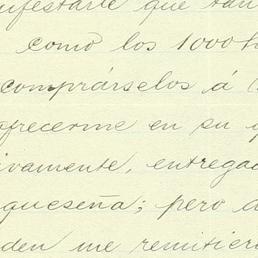 nifestarle que tan
como los 1000 h
comprárselos á
ofrecerme en su g
ivamente, entregad
gueseña; pero a
den me remitier